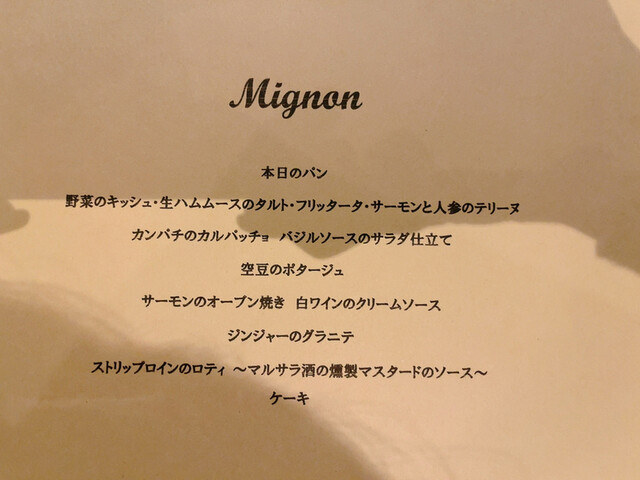 Mignon
本日のパン
野菜のキッシュ・生ハムムースのタルト・フリッタータ・サーモンと人参のテリーヌ
カンパチのカルパッチョ バジルソースのサラダ仕立て
空豆のポタージュ
サーモンのオーブン焼き 白ワインのクリームソース
ジンジャーのグラニテ
ストリップロインのロティ ～マルサラ酒の燻製マスタードのソース～
ケーキ